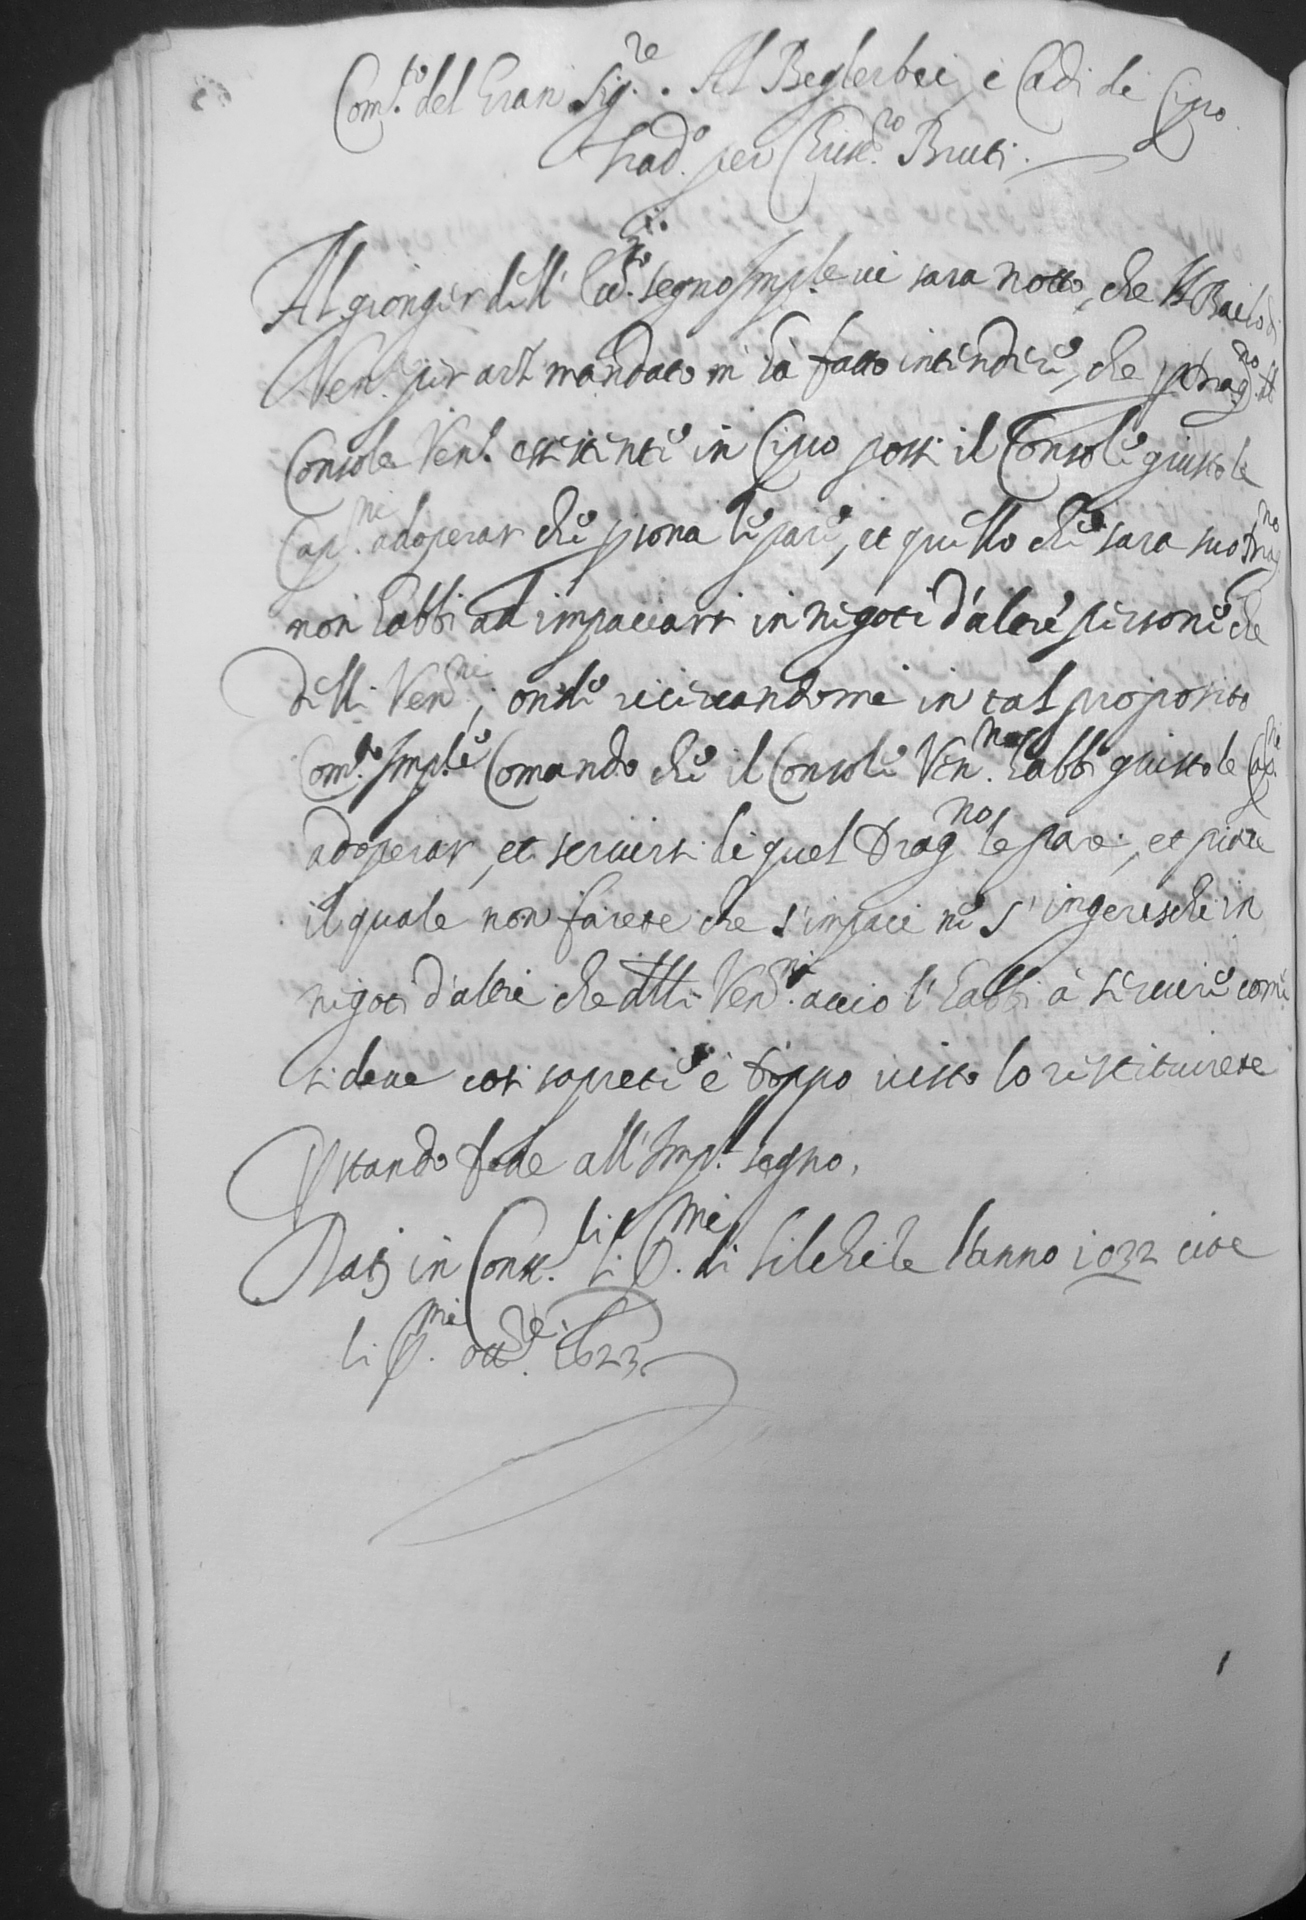 Com.to del Gran Sig.re. Al Beglerbei, e Cadi di Cipro
trad.o per Crist.ro Bruti.
Al gionger dell' Ecc.so segno Imp.le vi sara notto, che il Bailo di
Ven.a per arz mandato m'ha fatto intender, che p drag.no
Console Ven.o essistente in Cipro possi il Console giusto le
Cap.ni adoperar che persona le pare, et quello che sara suo Drag.no
non habbi ad impacciarsi in negoti d'altre persone che
delli Ven.ni, onde ricercandomi in tal proposito
Com.to Imp.le Comando che il Console Ven.no habbi giusto le Cap.ni
adoperar, et servirsi di quel Drag.no le pare, et piace
il quale non farete che s'impaci ne s'ingerischi in
negoti d'altri che delli Ven.ni accio l'habbi à servire come
si deve cosi saprete è doppo visto lo restituirete
Prstando fede all' Imp.l segno.
Dat in Const.li li p.mi di Silchile l'anno 1032 cioe
li p.mi ott.re 1623